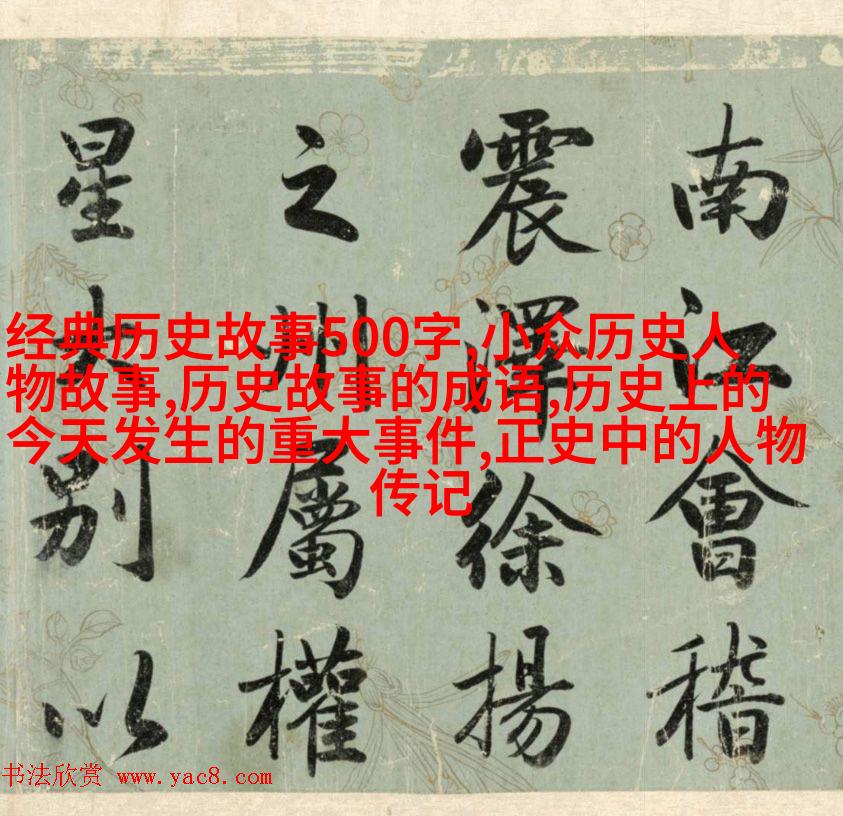 南江會稽
震澤徐揚
之州屬權
星別以
经典历史故事500字,小众历史人
物故事,历史故事的成语,历史上的
今天发生的重大事件,正史中的人物
传记
书法欣赏 www.yac8.com